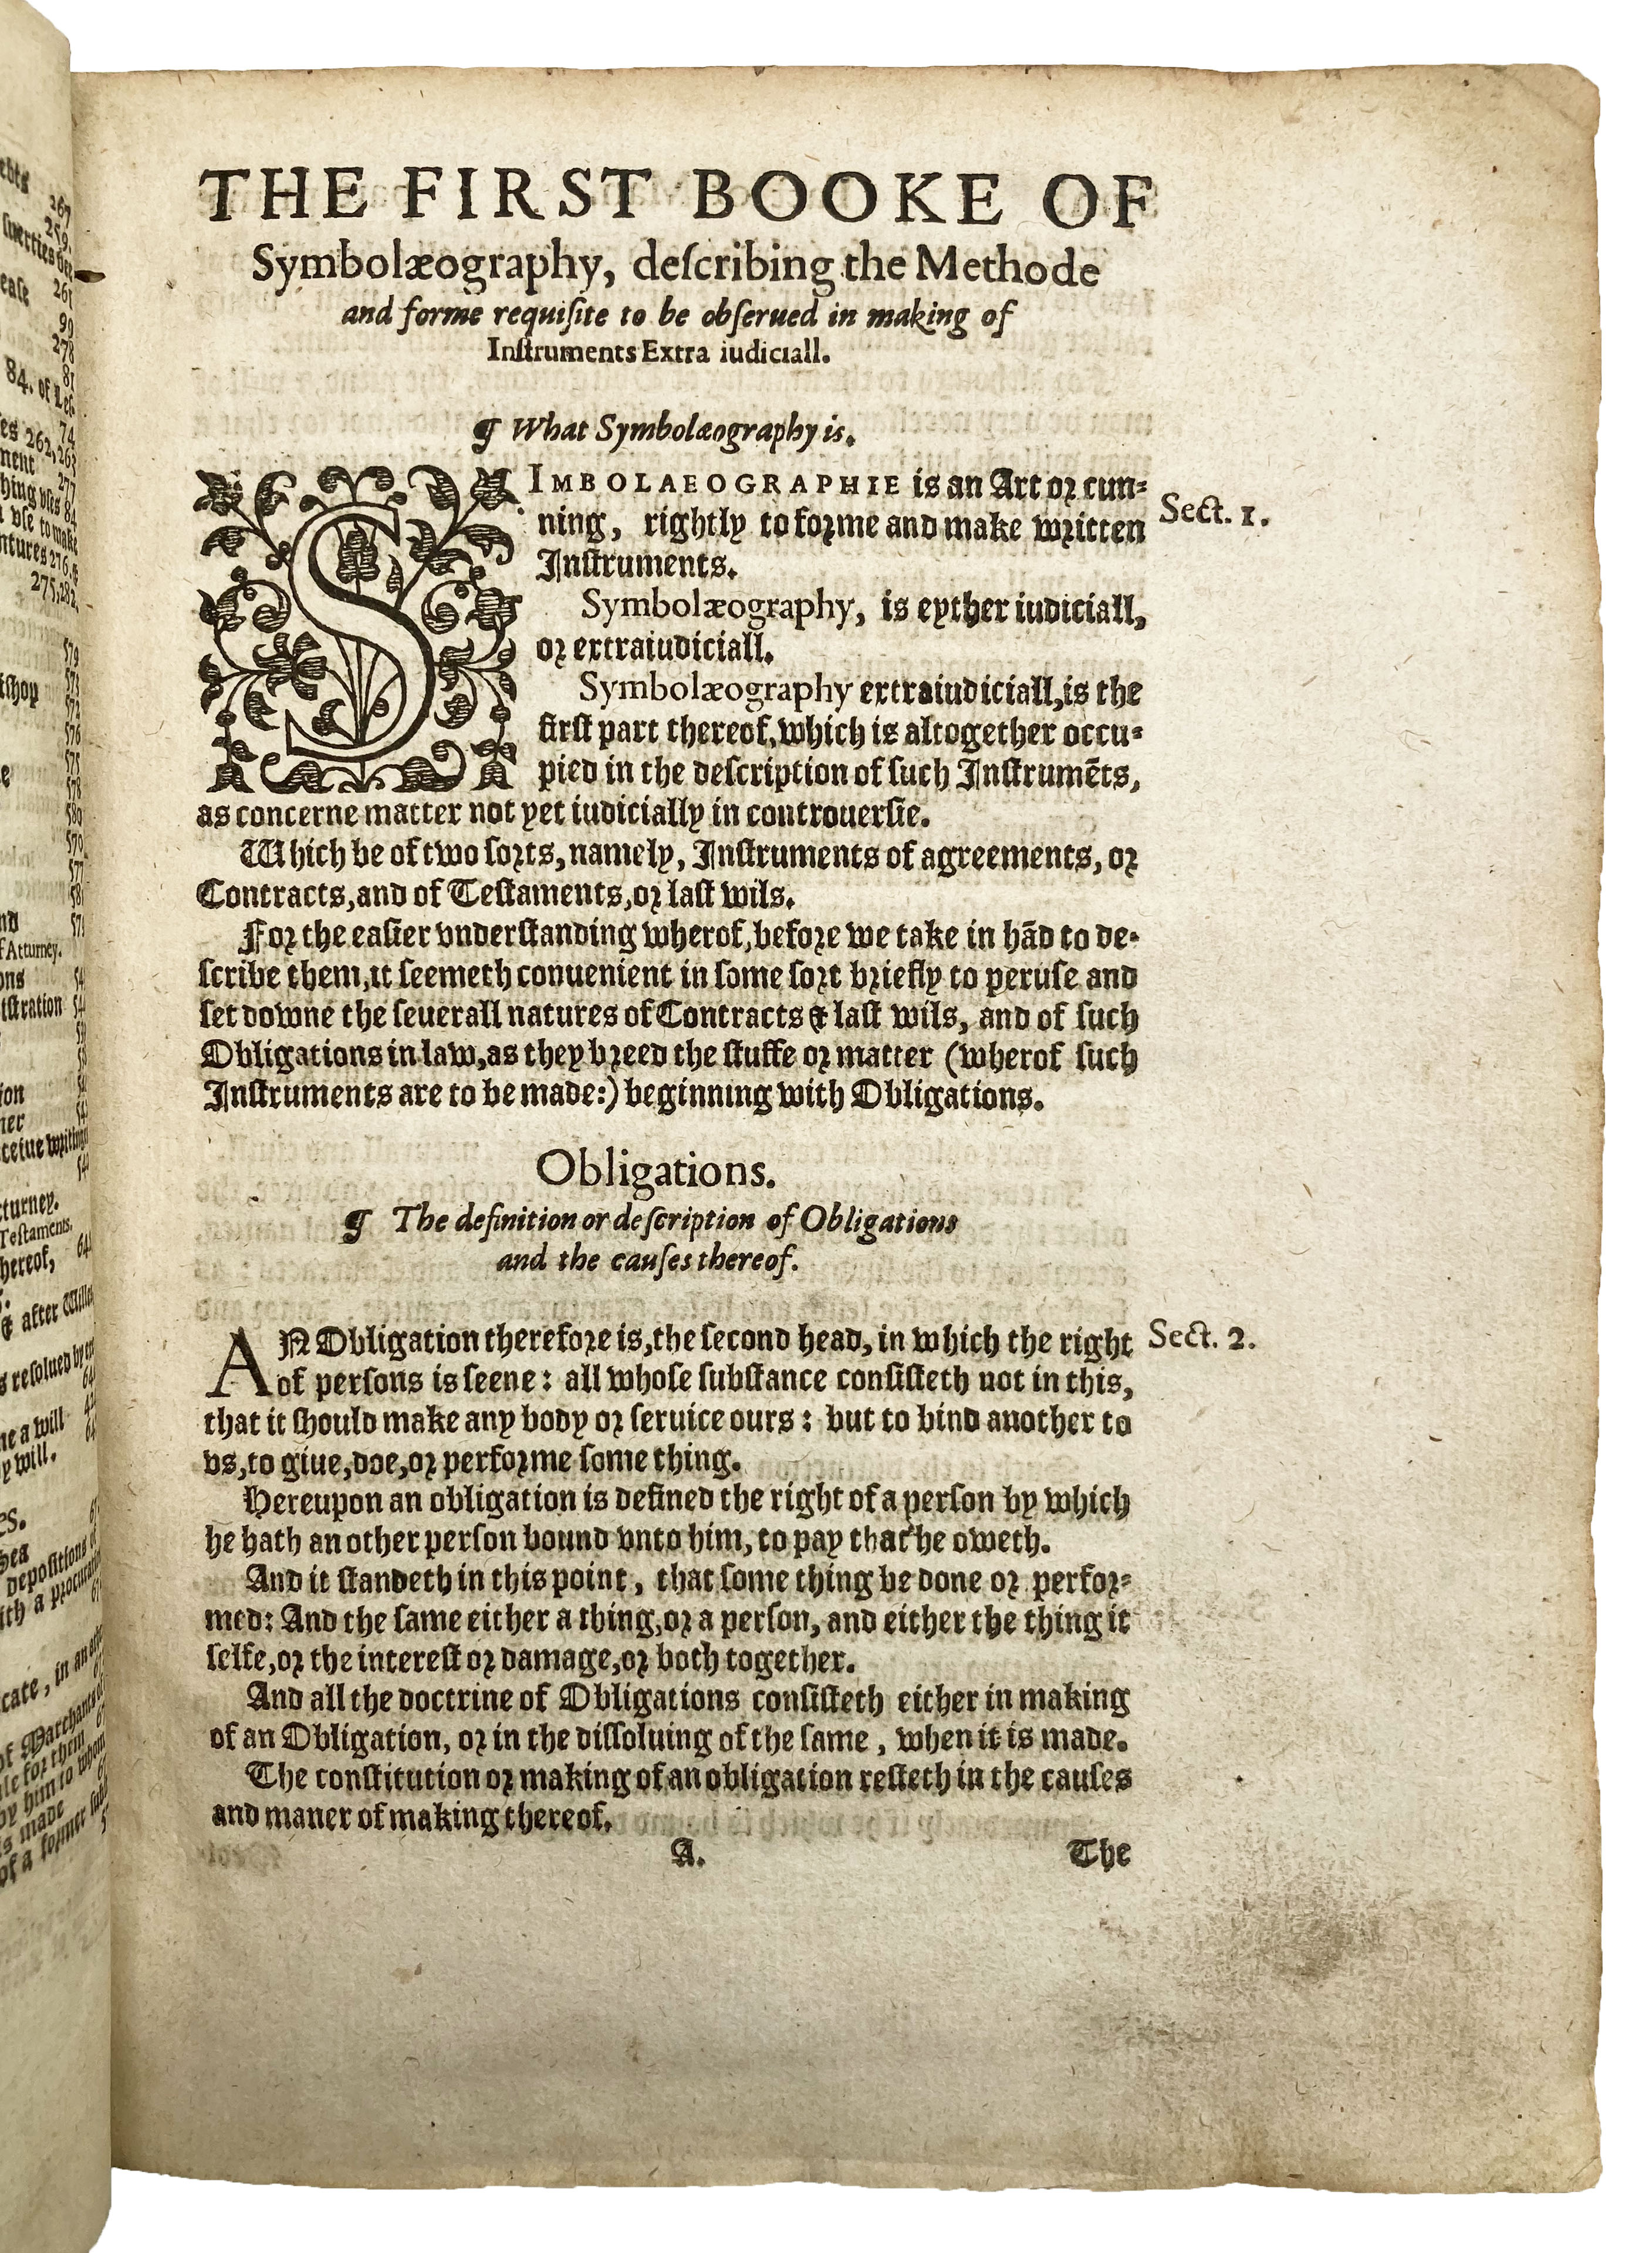 THE FIRST BOOKE OF
Symbolæography, deſcribing the Methode
and forme requiſite to be obſerued in making of
Inſtruments Extra iudiciall.
¶ What Symbolæography is.
SIMBOLAEOGRAPHIE is an Art or cun-
ning, rightly to forme and make written
Inſtruments.
Sect. 1.
Symbolæography, is eyther iudiciall,
or extraiudiciall.
Symbolæography extraiudiciall, is the
firſt part thereof, which is altogether occu-
pied in the deſcription of ſuch Inſtrumēts,
as concerne matter not yet iudicially in controuerſie.
Which be of two ſorts, namely, Inſtruments of agreements, or
Contracts, and of Teſtaments, or laſt wils.
For the eaſier vnderſtanding wherof, before we take in hād to de-
ſcribe them, it ſeemeth conuenient in ſome ſort briefly to peruſe and
ſet downe the ſeuerall natures of Contracts & laſt wils, and of ſuch
Obligations in law, as they breed the ſtuffe or matter (wherof ſuch
Inſtruments are to be made:) beginning with Obligations.
Obligations.
¶ The definition or deſcription of Obligations
and the cauſes thereof.
AN Obligation therefore is, the ſecond head, in which the right
Sect. 2.
of perſons is ſeene: all whoſe ſubſtance conſiſteth not in this,
that it ſhould make any body or ſeruice ours: but to bind another to
vs, to giue, doe, or performe ſome thing.
Hereupon an obligation is defined the right of a perſon by which
he hath an other perſon bound vnto him, to pay that he oweth.
And it ſtandeth in this point, that ſome thing be done or perfor-
med: And the ſame either a thing, or a perſon, and either the thing it
ſelfe, or the intereſt or damage, or both together.
And all the doctrine of Obligations conſiſteth either in making
of an Obligation, or in the diſſoluing of the ſame, when it is made.
The conſtitution or making of an obligation reſteth in the cauſes
and maner of making thereof.
A.
The